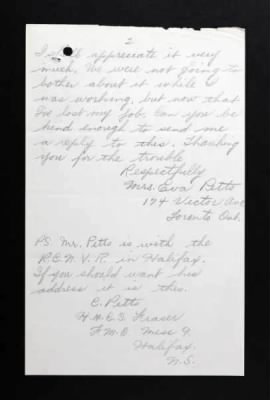 2
I shall appreciate it very
much. We were not going to
bother about it while I
was working, but now that
I've lost my job. Can you be
kind enough to send me
a reply to this. Thanking
you for the trouble
Respectfully
Mrs. Eva Pitts
174 Victor Ave
Toronto Ont.
PS. Mr. Pitts is with the
R.C.N.V.R. in Halifax.
If you should want his
address it is this.
C. Pitts
H.M.C.S. Fraser
F.M.O. Mess 9.
Halifax.
N.S.